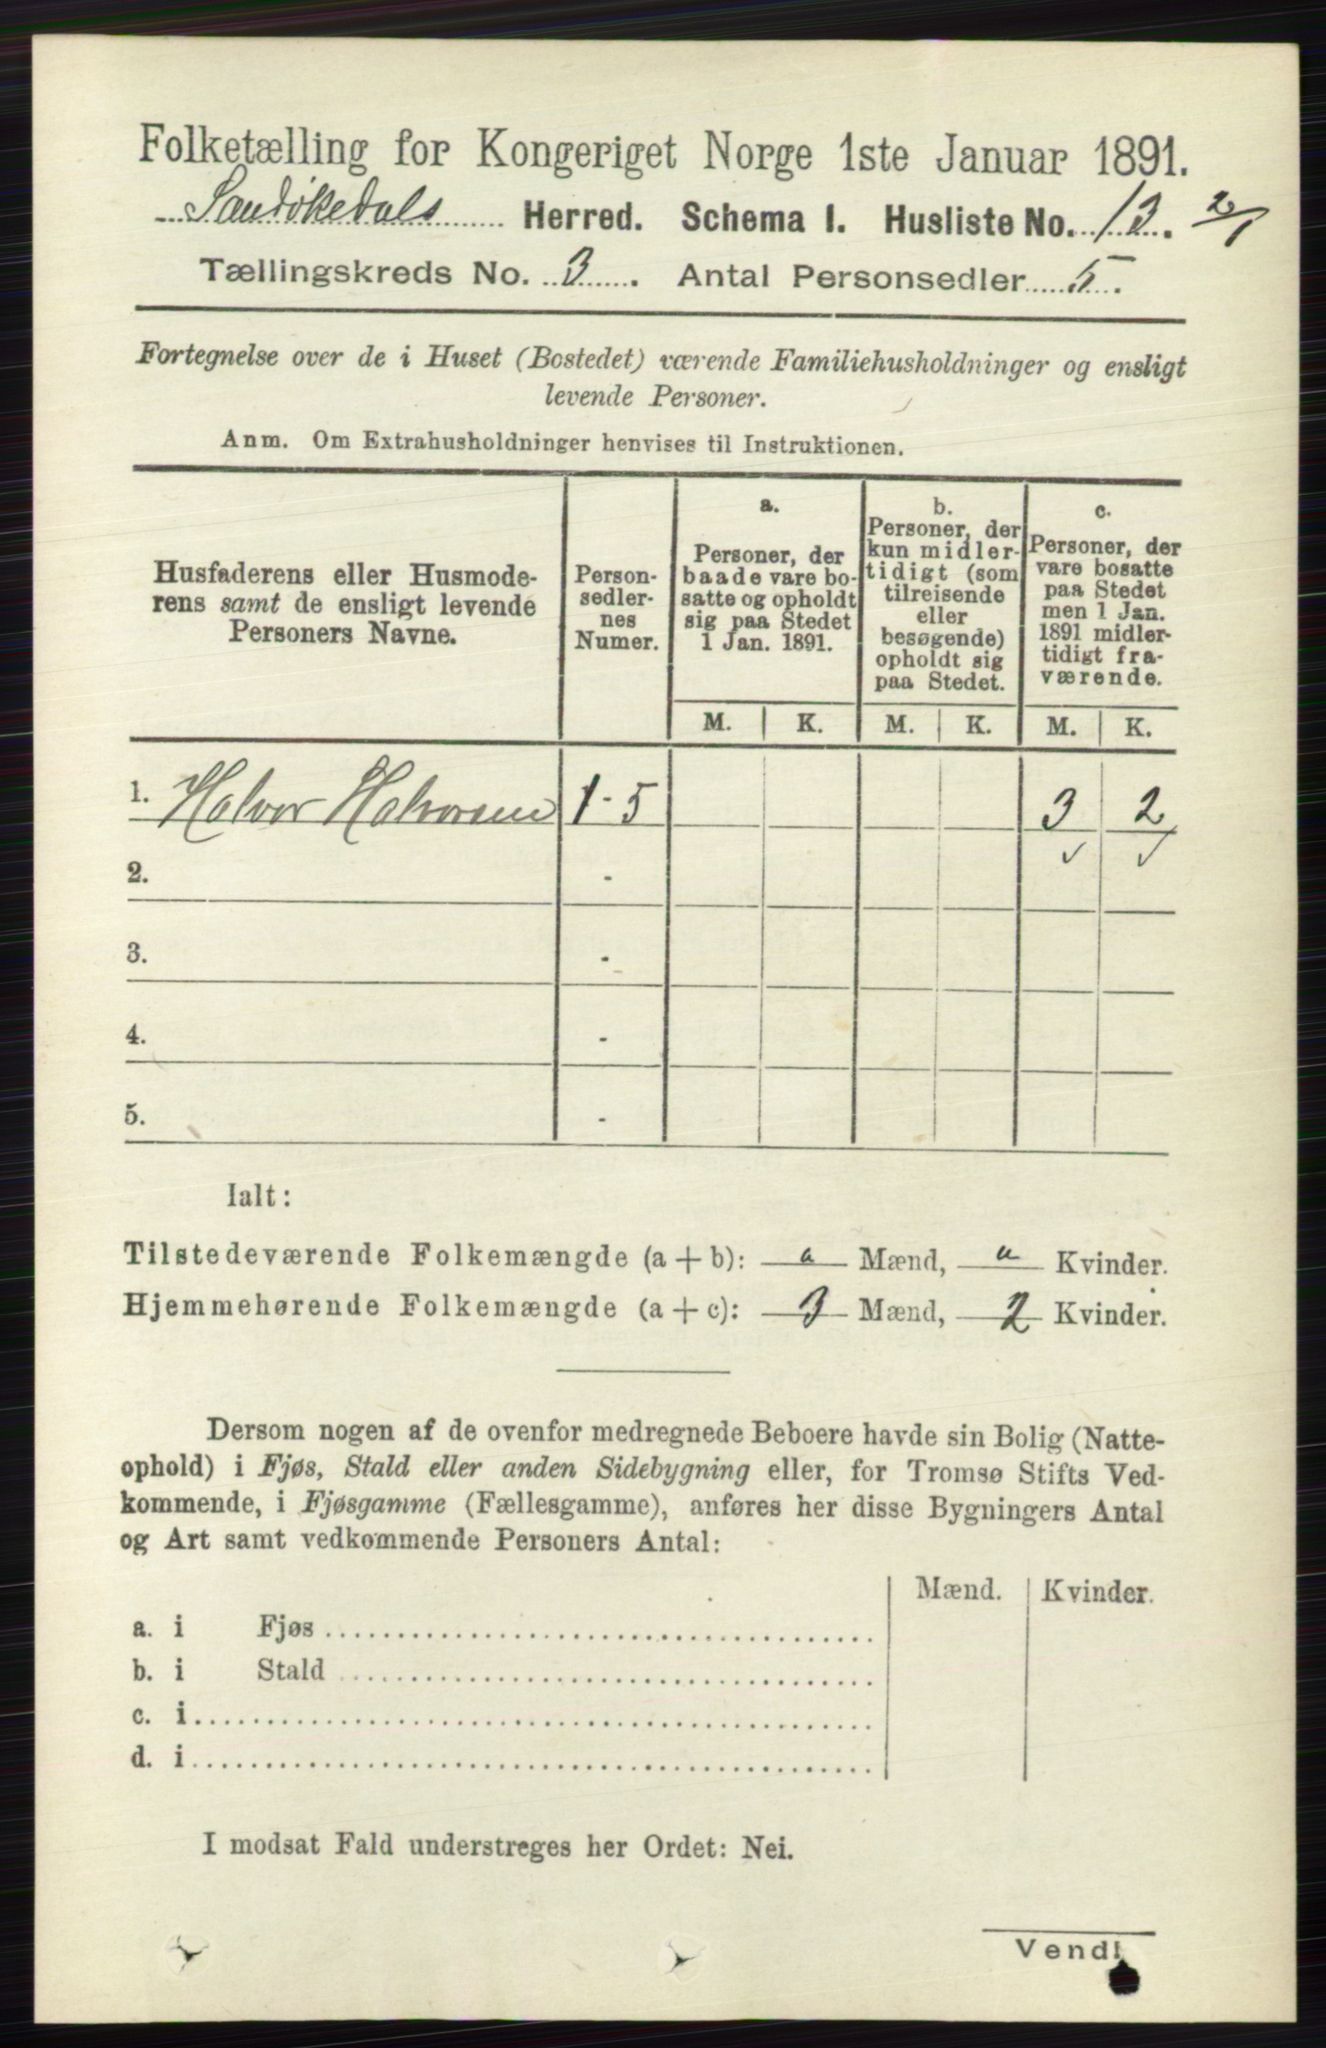 Folketælling for Kongeriget Norge 1ste Januar 1891.
Sandökedals Herred. Schema I. Husliste No. 13. 2/1
Tællingskreds No. 3. Antal Personsedler 5.
Fortegnelse over de i Huset (Bostedet) værende Familiehusholdninger og ensligt
levende Personer.
Anm. Om Extrahusholdninger henvises til Instruktionen.
Husfaderens eller Husmode-
rens samt de ensligt levende
Personers Navne.
Person-
sedler-
nes
Numer.
a.
Personer, der
baade vare bo-
satte og opholdt
sig paa Stedet
1 Jan. 1891.
b.
Personer, der
kun midler-
tidigt (som
tilreisende
eller
besøgende)
opholdt sig
paa Stedet.
c.
Personer, der
vare bosatte
paa Stedet
men 1 Jan.
1891 midler-
tidigt fra-
værende.
M. K. M. K. M. K.
1. Halvor Halvorsen 1-5 3 2
✓ ✓
2. -
3. -
4. -
5. -
Ialt:
Tilstedeværende Folkemængde (a + b): " Mænd, " Kvinder.
Hjemmehørende Folkemængde (a + c): 3 Mænd, 2 Kvinder.
Dersom nogen af de ovenfor medregnede Beboere havde sin Bolig (Natte-
ophold) i Fjøs, Stald eller anden Sidebygning eller, for Tromsø Stifts Ved-
kommende, i Fjøsgamme (Fællesgamme), anføres her disse Bygningers Antal
og Art samt vedkommende Personers Antal:
Mænd. Kvinder.
a. i Fjøs
b. i Stald
c. i
d. i
I modsat Fald understreges her Ordet: Nei.
Vend!